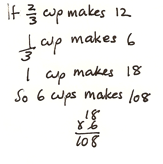 If 2/3 cup makes 12
1/3 cup makes 6
1 cup makes 18
So 6 cups makes 108
18
x 6
108